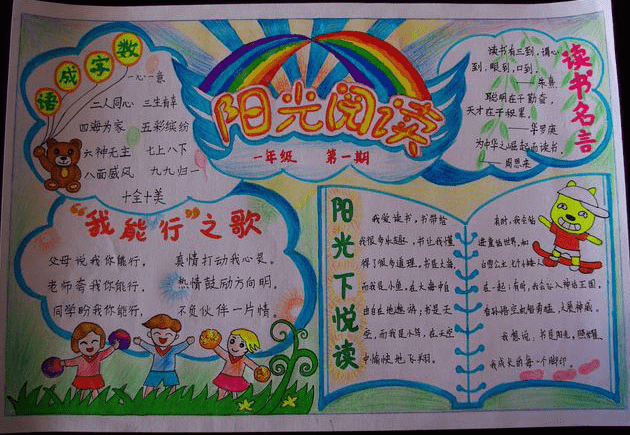 数字成语
一心一意
二人同心 三生有幸
四海为家 五彩缤纷
六神无主 七上八下
八面威风 九九归一
十全十美
阳光阅读
一年级 第一期
读书名言
读书有三到,谓心
到,眼到,口到。
——朱熹
聪明在于勤奋,
天才在于积累。
——华罗庚
为中华之崛起而读书。
——周恩来
“我能行”之歌
父母说我你能行, 真情打动我心灵。
老师夸我你能行, 热情鼓励方向明。
同学盼我你能行, 不负伙伴一片情。
阳光下悦读
我爱读书,书带给
我很多乐趣,书让我懂
得了很多道理。书是大海,
而我是小鱼,在大海中自
由自在地遨游;书是天
空,而我是小鸟,在天空
中愉快地飞翔。
有时,我会钻
进童话世界,和
白雪公主、七个小矮人
在一起;有时,我会 入神话王国,
看孙悟空 大显神威。
我想说,书是阳光,照耀
我成长的每一个脚印。